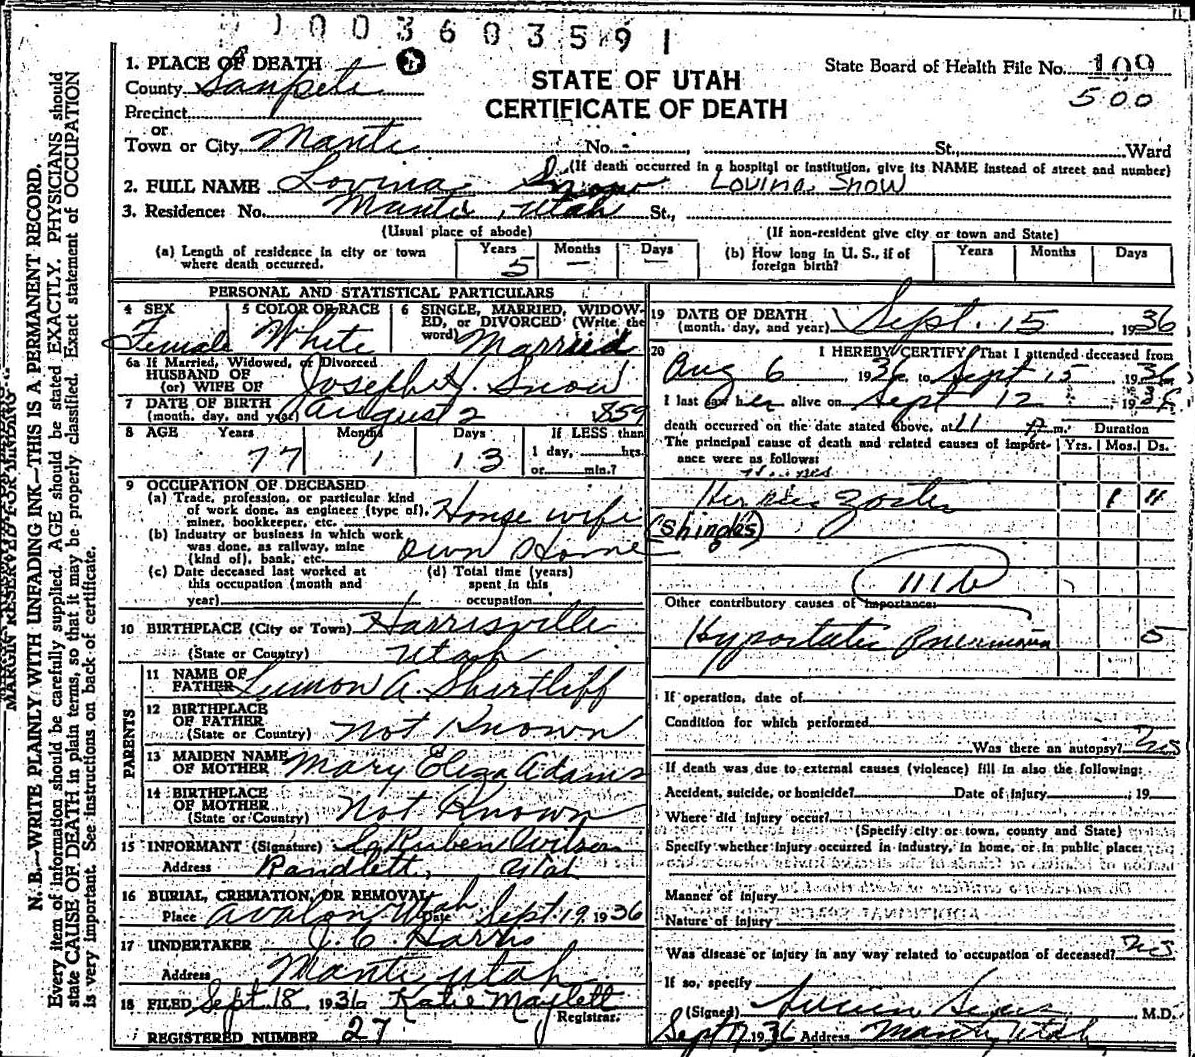 003603591
1. PLACE OF DEATH
County Sanpete
Precinct
or
Town or City Manti No. - St., Ward
STATE OF UTAH
CERTIFICATE OF DEATH
State Board of Health File No. 109
500
(If death occurred in a hospital or institution, give its NAME instead of street and number)
2. FULL NAME Lovina Snow Lovina Snow
3. Residence: No. Manti, Utah St.,
(Usual place of abode) (If non-resident give city or town and State)
(a) Length of residence in city or town where death occurred. Years 5 Months — Days —
(b) How long in U. S., if of foreign birth? Years Months Days
PERSONAL AND STATISTICAL PARTICULARS
4 SEX Female
5 COLOR OR RACE White
6 SINGLE, MARRIED, WIDOWED, or DIVORCED (Write the word) Married
6a If Married, Widowed, or Divorced
HUSBAND OF
(or) WIFE OF Joseph Snow
7 DATE OF BIRTH
(month, day, and year) August 2 859
8 AGE Years 77 Months 1 Days 13
If LESS than
1 day, hrs.
or min.?
9 OCCUPATION OF DECEASED
(a) Trade, profession, or particular kind
of work done, as engineer (type of),
miner, bookkeeper, etc. House wife
(b) Industry or business in which work
was done, as railway, mine
(kind of), bank, etc. Own Home
(c) Date deceased last worked at
this occupation (month and
year)
(d) Total time (years)
spent in this
occupation
10 BIRTHPLACE (City or Town) Harrisville
(State or Country) Utah
PARENTS
11 NAME OF
FATHER Lumon A. Shurtliff
12 BIRTHPLACE
OF FATHER
(State or Country) Not Known
13 MAIDEN NAME
OF MOTHER Mary Eliza Adams
14 BIRTHPLACE
OF MOTHER
(State or Country) Not Known
15 INFORMANT (Signature) Ruben Wilson
Address Randlett, Utah
16 BURIAL, CREMATION, OR REMOVAL
Place Avalon Utah Date Sept 19, 1936
17 UNDERTAKER J. C. Harris
Address Manti Utah
18 FILED Sept 18, 1936 Katie Maylett
Registrar.
REGISTERED NUMBER 27
19 DATE OF DEATH
(month, day, and year) Sept. 15 1936
20 I HEREBY CERTIFY, That I attended deceased from
Aug 6 1936, to Sept 15, 1936
I last saw her alive on Sept 12, 1936
death occurred on the date stated above, at 11 A m. Duration
The principal cause of death and related causes of importance were as follows: Yrs. Mos. Ds.
Herpes
Zoster 1 11
(Shingles)
Other contributory causes of importance:
Hypostatic Pneumonia 5
If operation, date of
Condition for which performed
Was there an autopsy? No
If death was due to external causes (violence) fill in also the following:
Accident, suicide, or homicide? Date of injury , 19
Where did injury occur?
(Specify city or town, county and State)
Specify whether injury occurred in industry, in home, or in public place:
Manner of injury
Nature of injury
Was disease or injury in any way related to occupation of deceased? No
If so, specify
(Signed) M.D.
Sept 17 1936 Address Manti, Utah
MARGIN RESERVED FOR BINDING
N. B.—WRITE PLAINLY WITH UNFADING INK—THIS IS A PERMANENT RECORD.
Every item of information should be carefully supplied. AGE should be stated EXACTLY. PHYSICIANS should
state CAUSE OF DEATH in plain terms, so that it may be properly classified. Exact statement of OCCUPATION
is very important. See instructions on back of certificate.